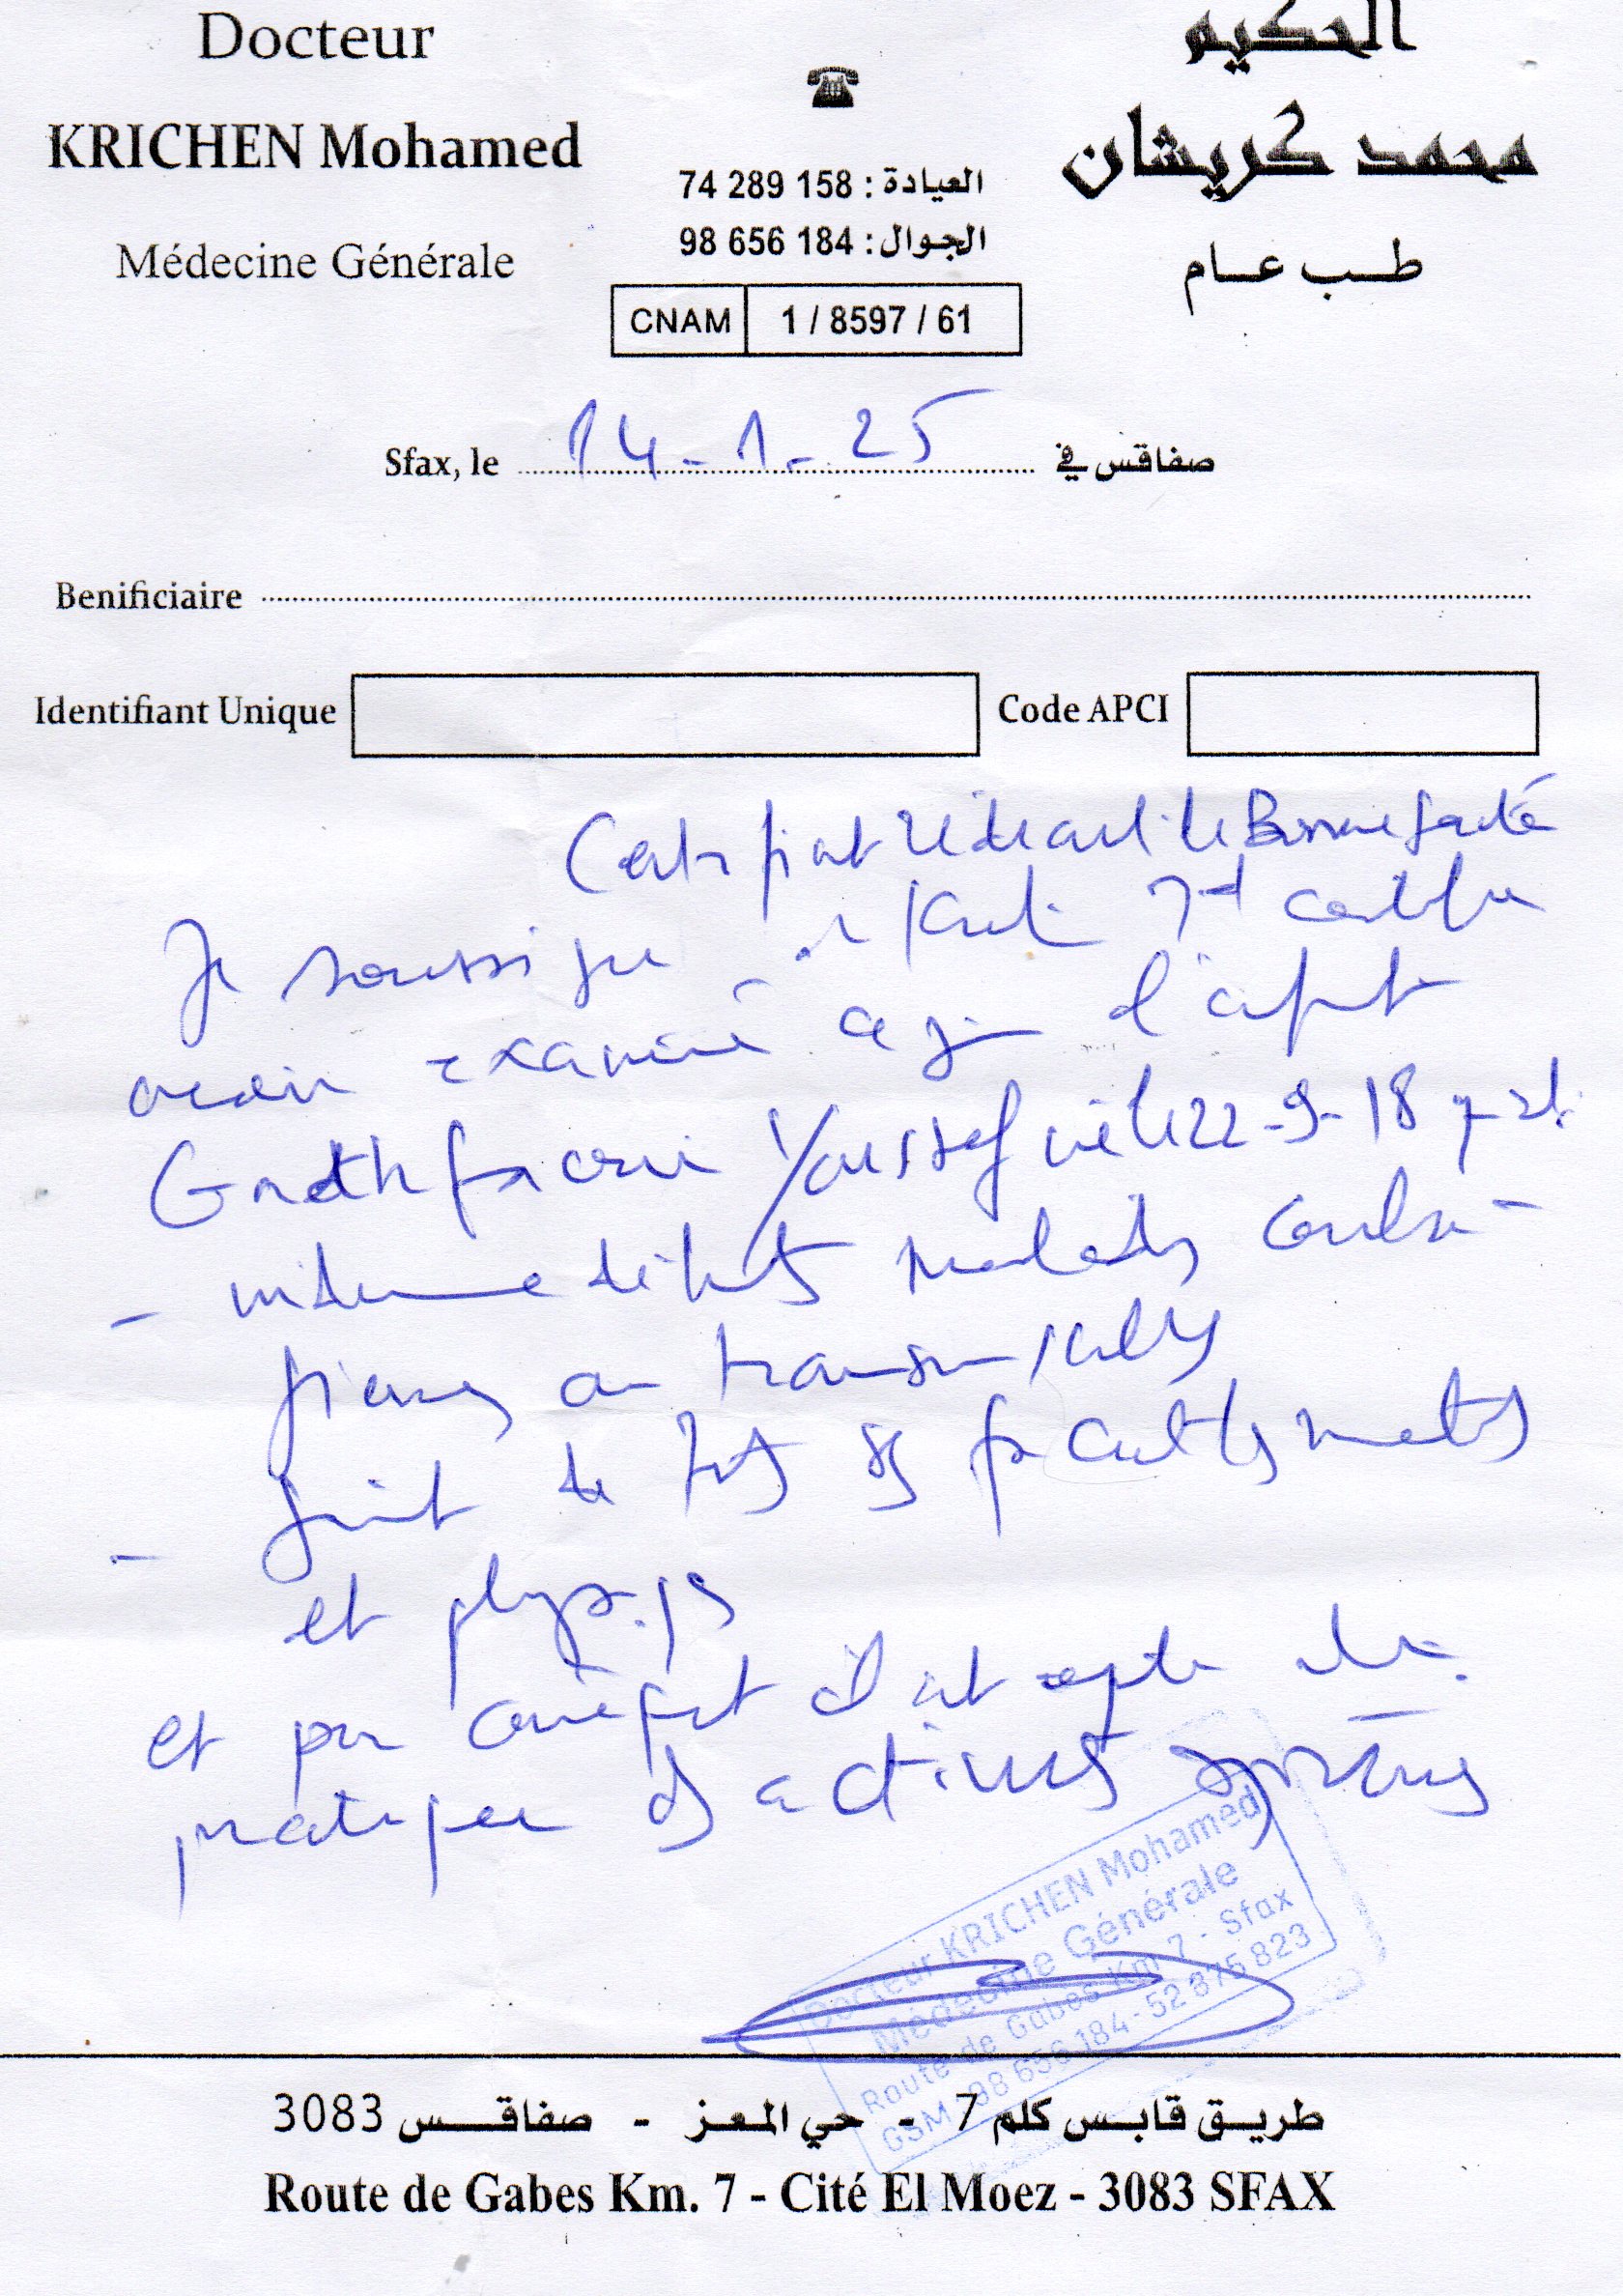 Docteur
KRICHEN Mohamed
Médecine Générale
العيادة : 74 289 158
الجوال : 98 656 184
CNAM 1 / 8597 / 61
الحكيم
محمد كريشان
طب عام
Sfax, le 14-1-25 صفاقس في
Benificiaire
Identifiant Unique Code APCI
Certificat médical de Bonne Santé
Je soussigné certifie
avoir examiné ce jour l'enfant
Youssef né le 22-9-18
- indemne de toutes maladies conta-
gieuses ou transmissibles
- jouit de ses facultés mentales
et physiques
et par conséquent il est apte
pratiquer des activités sportives
Docteur KRICHEN Mohamed
Médecine Générale
Route de Gabes Km 7 - Sfax
GSM : 98 656 184 - 52 875 823
طريق قابس كلم 7 - حي المعز - صفاقس 3083
Route de Gabes Km. 7 - Cité El Moez - 3083 SFAX